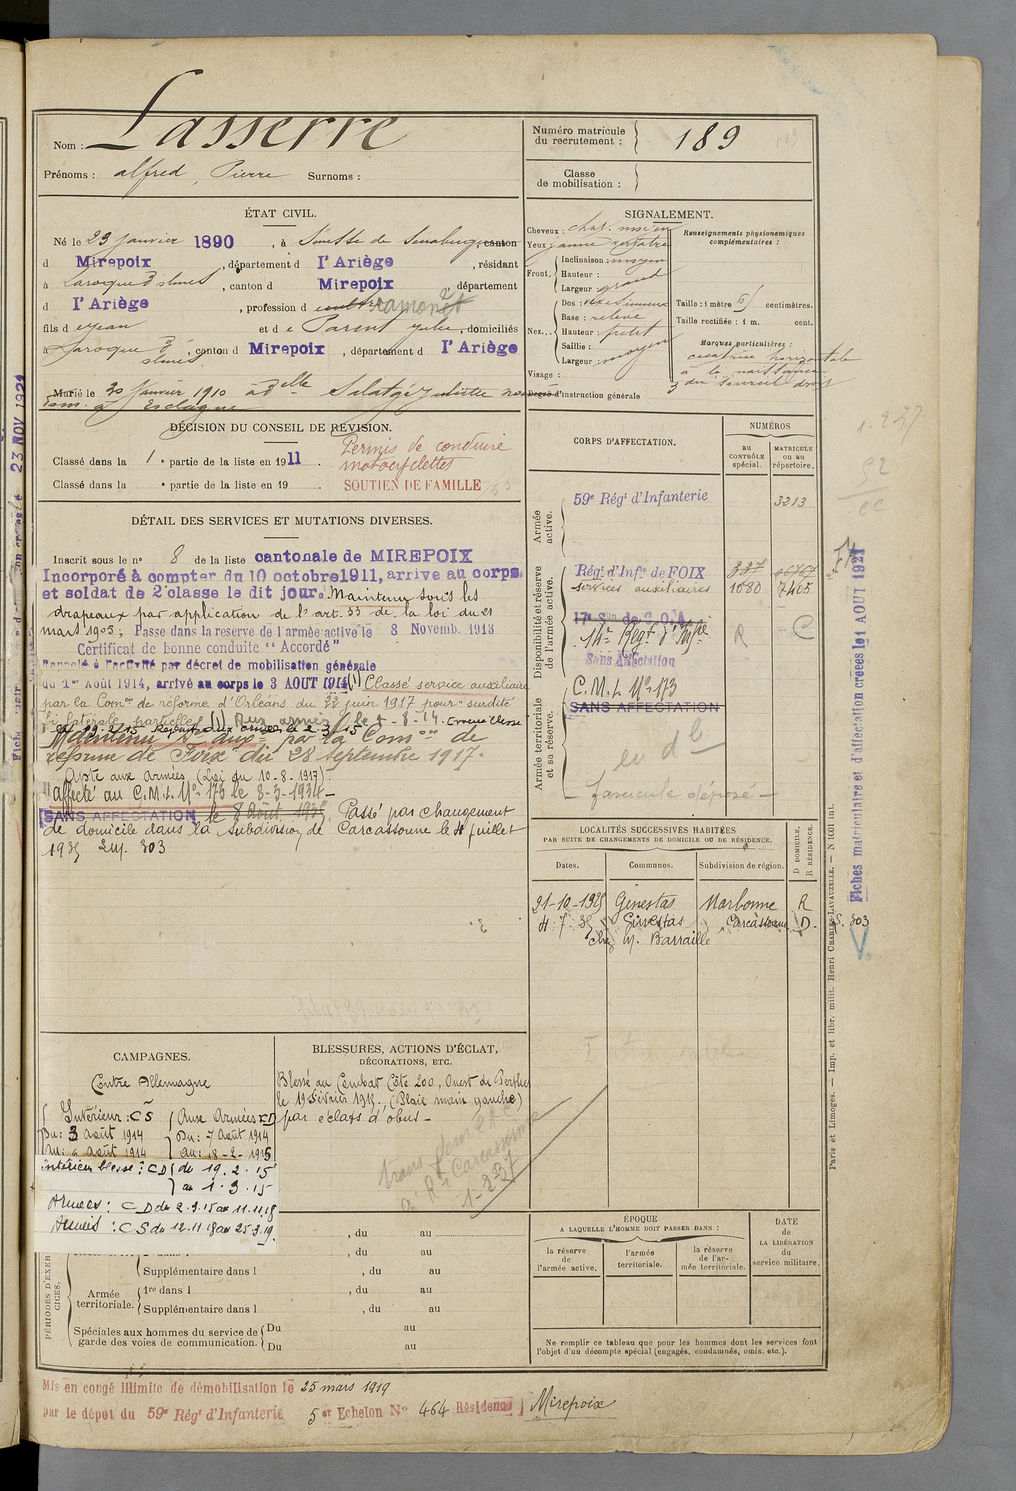 Nom : Lasserre
Prénoms : alfred, Pierre Surnoms :
Numéro matricule du recrutement : 189
Classe de mobilisation :
ÉTAT CIVIL.
Né le 23 Janvier 1890, à canton
d Mirepoix, département d l'Ariège, résidant
à Laroque d'olmes, canton d Mirepoix département
d l'Ariège, profession d
fils d et de Parent Julie, domiciliés
à Laroque d'olmes, canton d Mirepoix, département d l'Ariège
Marié le 20 Janvier 1910 à Delle
SIGNALEMENT.
Cheveux : chat. moyen
Yeux : jaune verdatre
Front. Inclinaison : moyen
Hauteur :
Largeur : grand
Nez... Dos :
Base : relevé
Hauteur : petit
Saillie :
Largeur : moyen
Visage :
Degré d'instruction générale
Renseignements physionomiques complémentaires :
Taille : 1 mètre centimètres.
Taille rectifiée : 1 m. cent.
Marques particulières :
cicatrice horizontale
à la naissance
du sourcil droit
DÉCISION DU CONSEIL DE RÉVISION.
Classé dans la 1e partie de la liste en 1911.
Classé dans la e partie de la liste en 19
Permis de conduire
motocyclettes
SOUTIEN DE FAMILLE
DÉTAIL DES SERVICES ET MUTATIONS DIVERSES.
Inscrit sous le n° 8 de la liste cantonale de MIREPOIX
Incorporé à compter du 10 octobre 1911, arrive au corps
et soldat de 2e classe le dit jour. Maintenu sous les
drapeaux par application de l'art. 33 de la loi du 21
mars 1905; Passe dans la reserve de l'armée active le 8 Novemb. 1913
Certificat de bonne conduite "Accordé"
Rappelé à l'activité par décret de mobilisation générale
du 1er Août 1914, arrivé au corps le 3 AOUT 1914 (1) Classé service auxiliaire
par la Comon de réforme d'Orléans du 22 juin 1917 pour surdité
bilatérale partielle (1) Aux armées le 7-8-14. Evacué blessé
le 19-2-15 Rejoint aux armées le 2-3-15
Maintenu Sce auxre par la Comon de
réforme de Foix du 28 septembre 1917.
Apte aux Armées (Loi du 10-8-1917)
Affecté au C.M.L. N° 173 le 8-3-1934
SANS AFFECTATION le 8 Août 1935. Passé par changement
de domicile dans la subdivision de Carcassonne le 4 juillet
1935 Sup. 303
CORPS D'AFFECTATION.
NUMÉROS
au CONTRÔLE spécial.
MATRICULE ou au répertoire.
Armée active.
59e Régt d'Infanterie 3213
Disponibilité et réserve de l'armée active.
Régt d'Infie de FOIX
services auxiliaires 1080 7405
14e Régt d'Infie R C
Sans Affectation
Armée territoriale et sa réserve.
C.M.L N° 173
SANS AFFECTATION
en dl
fascicule déposé
LOCALITÉS SUCCESSIVES HABITÉES
PAR SUITE DE CHANGEMENTS DE DOMICILE OU DE RÉSIDENCE.
Dates. Communes. Subdivision de région. D DOMICILE. R RÉSIDENCE.
21-10-1925 Ginestas Narbonne R
4-7-35 Ginestas Carcassonne D. S. 303
Chez M. Barraille
CAMPAGNES.
Contre Allemagne
Intérieur : CS
Du : 3 août 1914
Au : 6 août 1914
Aux Armées CD
Du : 7 Août 1914
Au : 18-2-1915
intérieur blessé : CD du 19.2.15
au 1.3.15
Armées : CD du 2.3.15 au 11.11.18
Armées : CS du 12.11.18 au 25.3.19.
BLESSURES, ACTIONS D'ÉCLAT,
DÉCORATIONS, ETC.
Blessé au Combat Côte 200, Ouest de Perthes
le 19 Février 1915. (Plaie main gauche)
par éclats d'obus
à Rt Carcassonne
1-2-37
PÉRIODES D'EXERCICES.
, du au
, du au
Supplémentaire dans l , du au
Armée territoriale. 1re dans l , du au
Supplémentaire dans l , du au
Spéciales aux hommes du service de garde des voies de communication. Du au
Du au
ÉPOQUE
A LAQUELLE L'HOMME DOIT PASSER DANS :
la réserve de l'armée active.
l'armée territoriale.
la réserve de l'armée territoriale.
DATE DE LA LIBÉRATION du service militaire.
Ne remplir ce tableau que pour les hommes dont les services font
l'objet d'un décompte spécial (engagés, condamnés, omis, etc.).
Mis en congé illimité de démobilisation le 25 mars 1919
par le dépot du 59e Régt d'Infanterie 5er Echelon N° 464 Résidence Mirepoix
Fiches matriculaire et d'affectation créées le 1 AOUT 1921
Paris et Limoges. — Imp. et libr. milit. Henri CHARLES-LAVAUZELLE. — N 1001 int.
23 NOV 1921